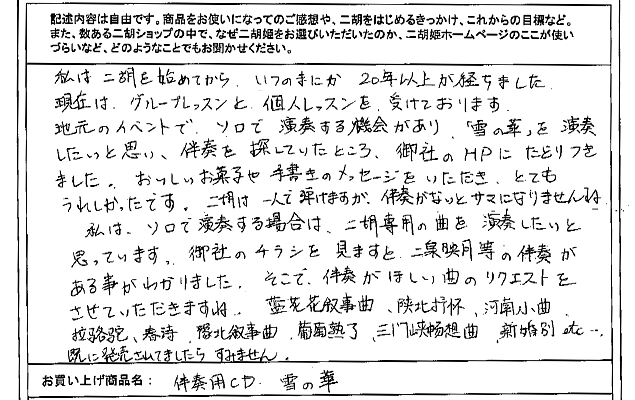 記述内容は自由です。商品をお使いになってのご感想や、二胡をはじめるきっかけ、これからの目標など。
また、数ある二胡ショップの中で、なぜ二胡姫をお選びいただいたのか、二胡姫ホームページのここが使い
づらいなど、どのようなことでもお聞かせください。
私は二胡を始めてから、いつのまにか 20年以上が経ちました
現在は、グループレッスンと 個人レッスンを 受けております.
地元のイベントで、ソロで 演奏する機会があり、「雪の華」を演奏
したいと思い、伴奏を探していたところ、御社のHPにたどりつき
ました。おいしいお菓子や 手書きのメッセージをいただき、とても
うれしかったです。二胡は一人で弾けますが、伴奏がないとサマになりませんね
私は、ソロで演奏する場合は、二胡専用の曲を演奏したいと
思っています。御社のチラシを見ますと、二泉映月等の伴奏が
ある事がわかりました。そこで、伴奏がほしい曲のリクエストを
させていただきますね. 藍花花叙事曲、陝北抒怀、河南小曲、
拉骆驼、春诗、豫北叙事曲、葡萄熟了、三门峡畅想曲、新婚别 etc…
既に発売されてましたら すみません。
お買い上げ商品名： 伴奏用CD. 雪の華